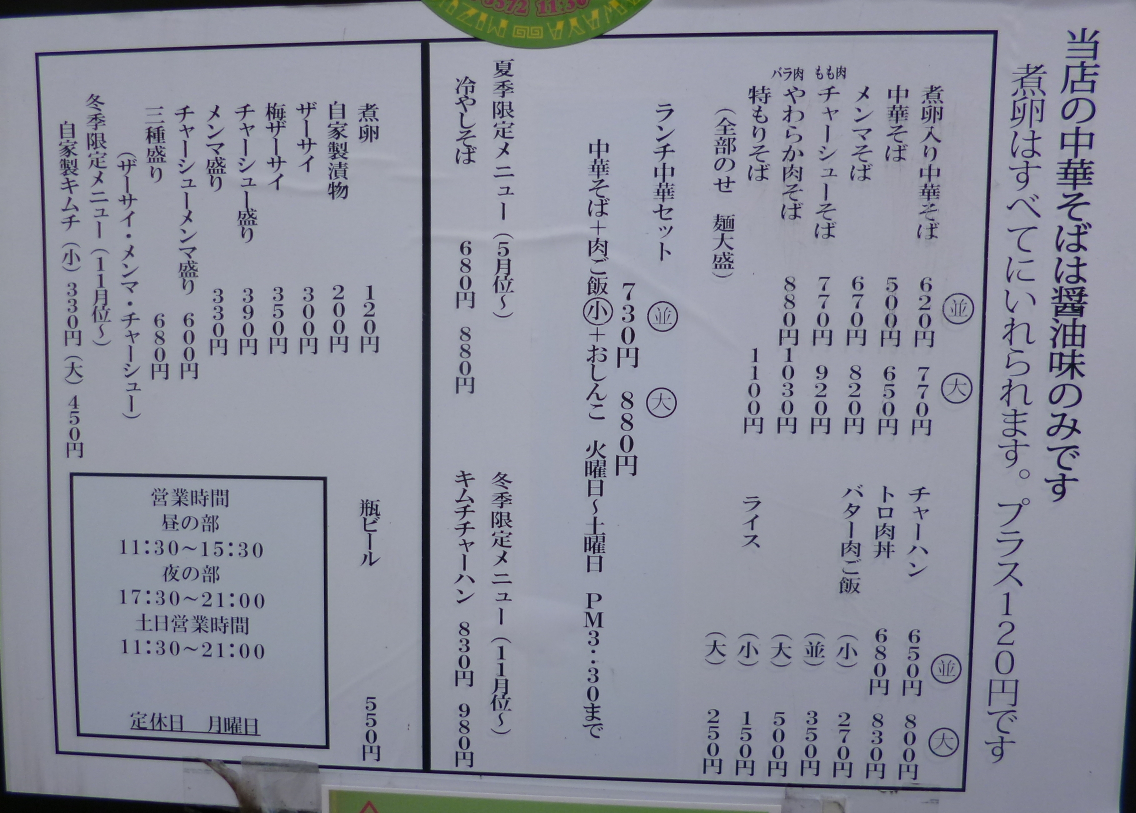 当店の中華そばは醤油味のみです
煮卵はすべてにいれられます。プラス120円です
並 大
煮卵入り中華そば 620円 770円
中華そば 500円 650円
メンマそば 670円 820円
もも肉
チャーシューそば 770円 920円
バラ肉
やわらか肉そば 880円 1030円
特もりそば 1100円
(全部のせ 麺大盛)
並 大
チャーハン 650円 800円
トロ肉丼 680円 830円
バター肉ご飯 (小) 270円
(並) 350円
(大) 500円
ライス (小) 150円
(大) 250円
ランチ中華セット 並 大
730円 880円
中華そば+肉ご飯小+おしんこ 火曜日~土曜日 PM3:30まで
夏季限定メニュー(5月位~)
冷やしそば 680円 880円
冬季限定メニュー(11月位~)
キムチチャーハン 830円 980円
煮卵 120円
自家製漬物 200円
ザーサイ 300円
梅ザーサイ 350円
チャーシュー盛り 390円
メンマ盛り 330円
チャーシューメンマ盛り 600円
三種盛り 680円
(ザーサイ・メンマ・チャーシュー)
冬季限定メニュー(11月位~)
自家製キムチ(小)330円(大)450円
瓶ビール 550円
営業時間
昼の部
11:30~15:30
夜の部
17:30~21:00
土日営業時間
11:30~21:00
定休日 月曜日